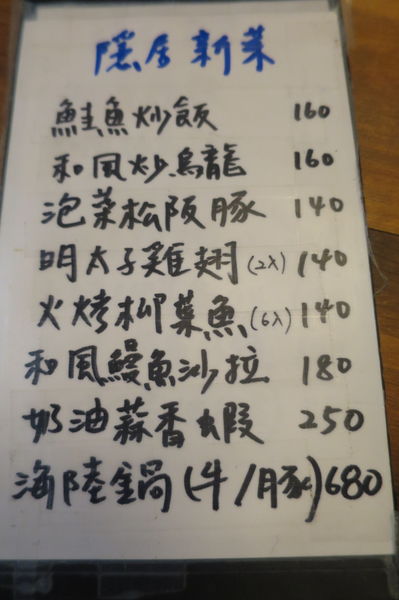 隱居新菜
鮭魚炒飯 160
和風炒烏龍 160
泡菜松阪豚 140
明太子雞翅(2入) 140
火烤柳葉魚(6入) 140
和風鰻魚沙拉 180
奶油蒜香蝦 250
海陸鍋(牛/豚) 680